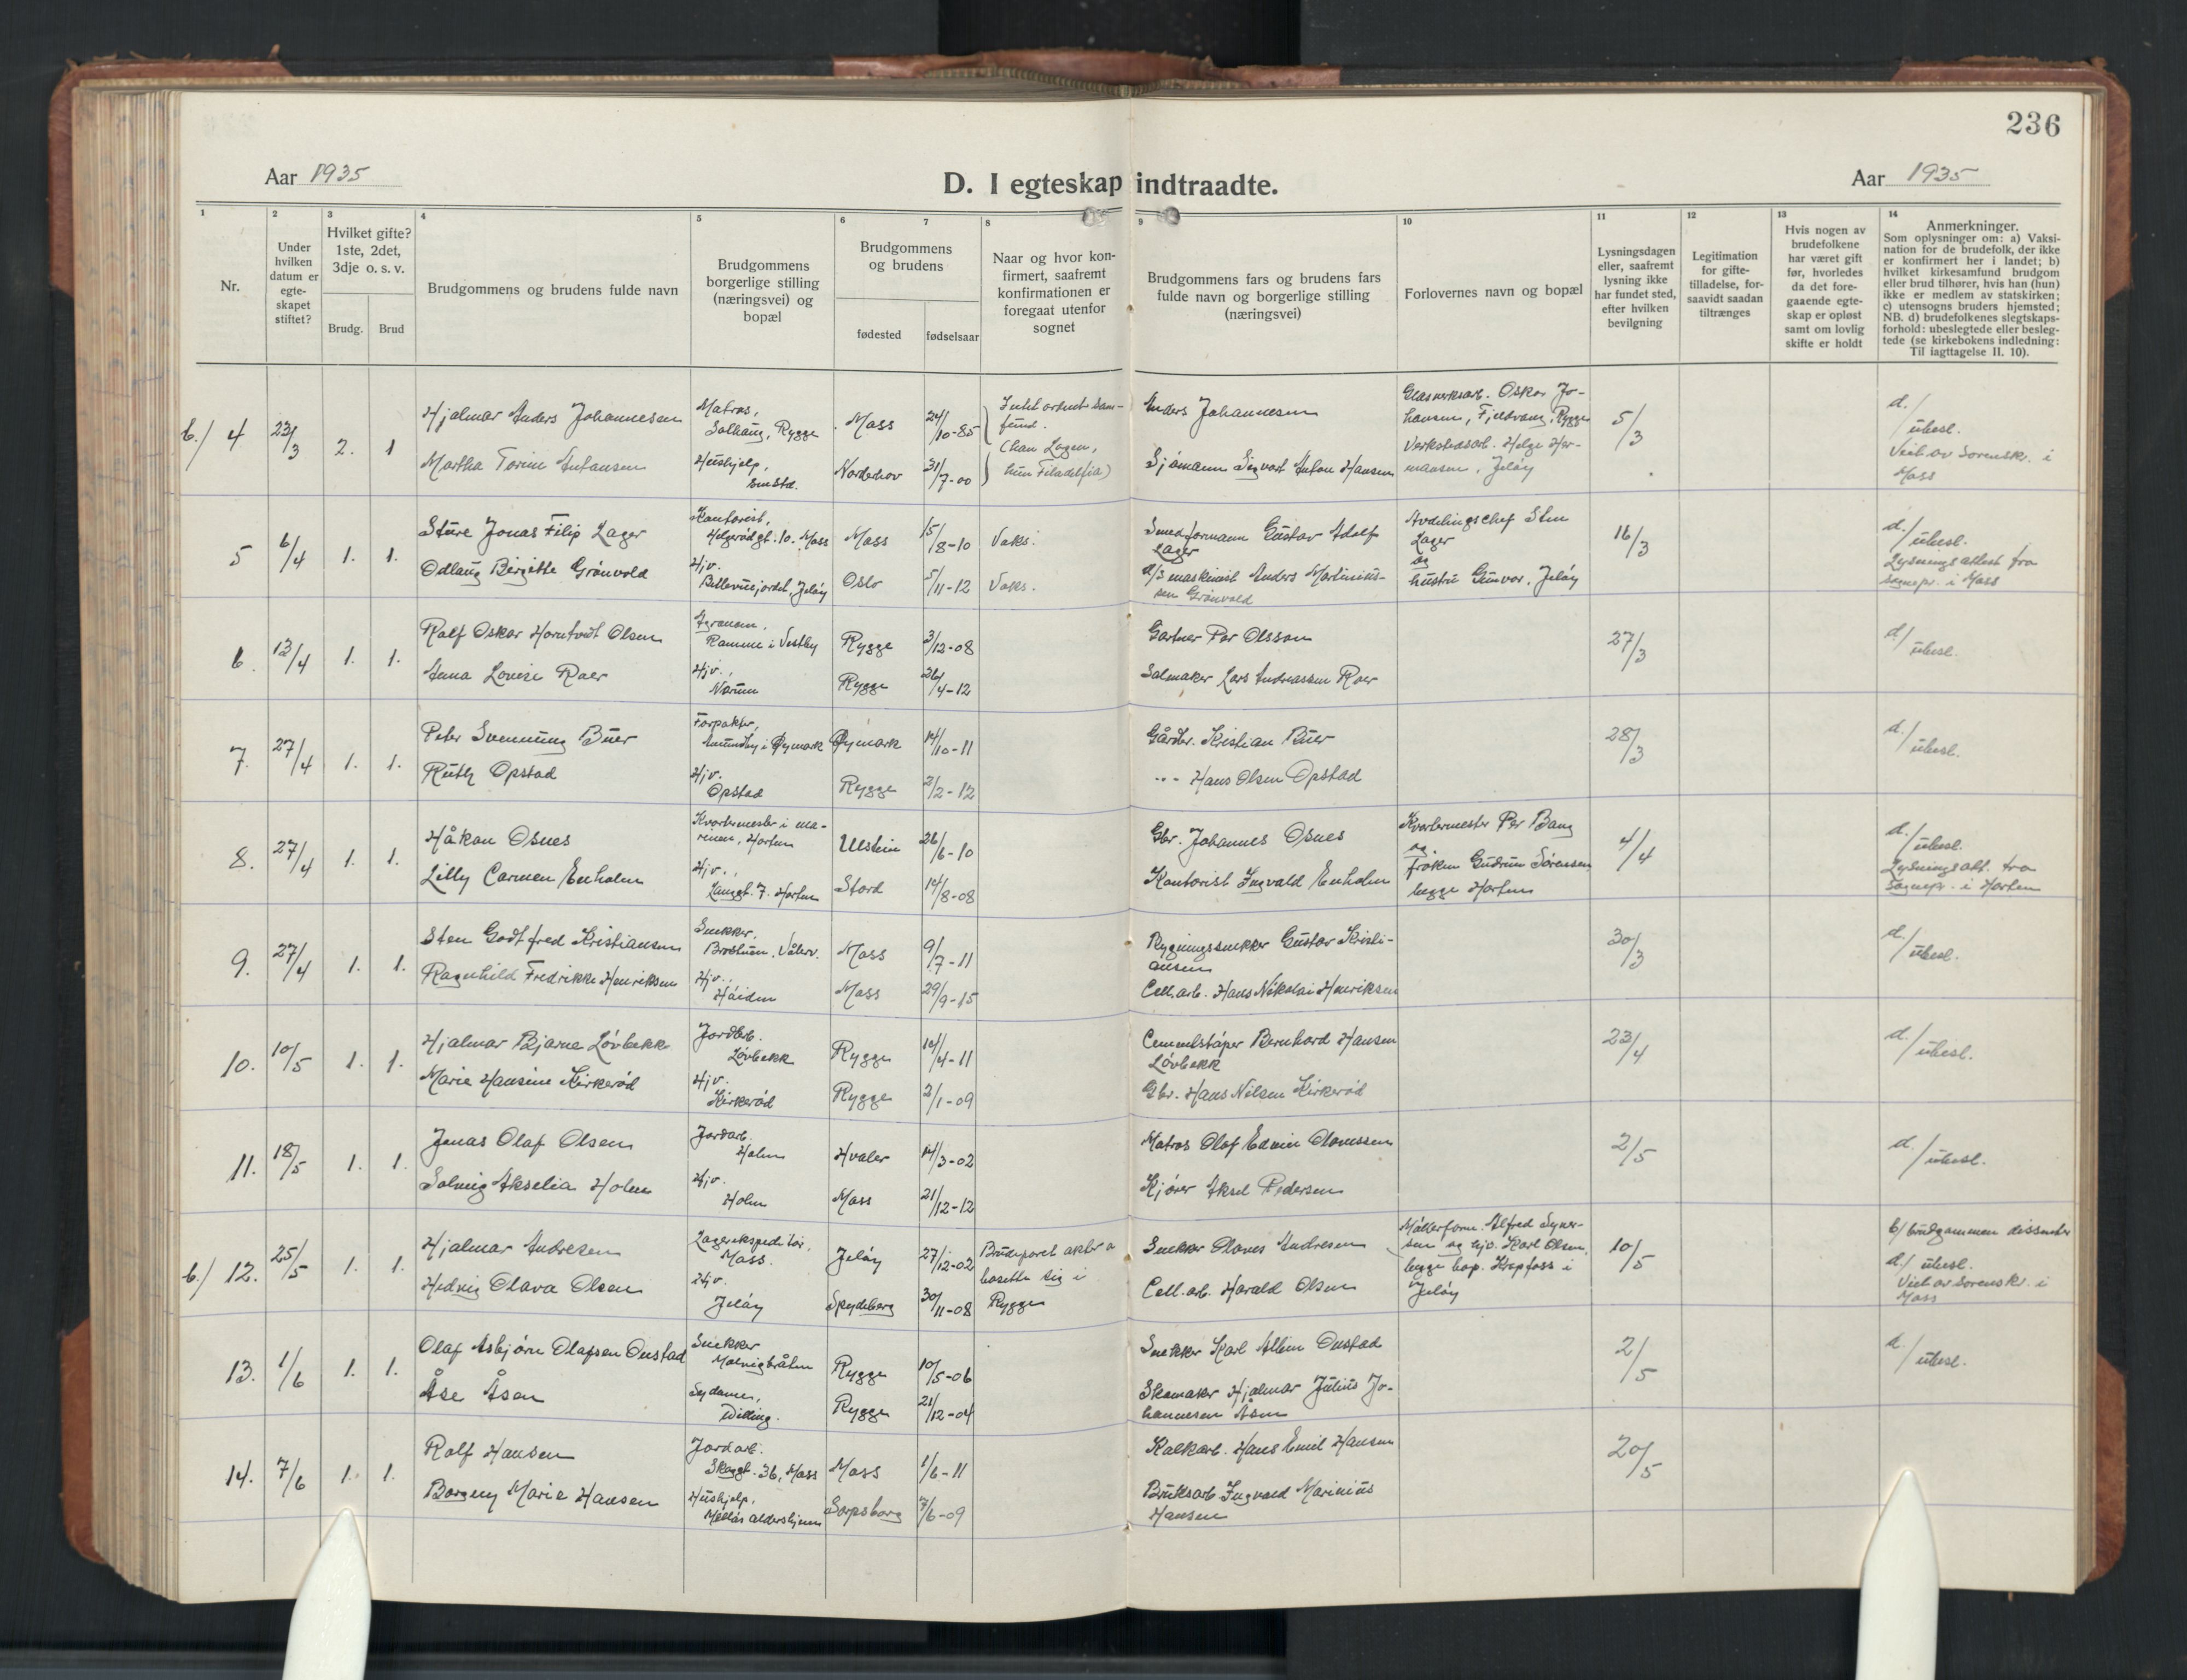 236
Aar 1935
D. I egteskap indtraadte.
Aar 1935
1
2
3
4
5
6
7
8
9
10
11
12
13
14
Nr.
Under hvilken datum er egte-skapet stiftet?
Hvilket gifte? 1ste, 2det, 3dje o. s. v.
Brudg.
Brud
Brudgommens og brudens fulde navn
Brudgommens borgerlige stilling (næringsvei) og bopæl
Brudgommens og brudens
fødested
fødselsaar
Naar og hvor kon-firmert, saafremt konfirmationen er foregaat utenfor sognet
Brudgommens fars og brudens fars fulde navn og borgerlige stilling (næringsvei)
Forlovernes navn og bopæl
Lysningsdagen eller, saafremt lysning ikke har fundet sted, efter hvilken bevilgning
Legitimation for gifte-tilladelse, for-saavidt saadan tiltrænges
Hvis nogen av brudefolkene har været gift før, hvorledes da det fore-gaaende egte-skap er opløst samt om lovlig skifte er holdt
Anmerkninger.
Som oplysninger om: a) Vaksi-nation for de brudefolk, der ikke er konfirmert her i landet; b) hvilket kirkesamfund brudgom eller brud tilhører, hvis han (hun) ikke er medlem av statskirken; c) utensogns bruders hjemsted; NB. d) brudefolkenes slegtskaps-forhold: ubeslegtede eller besleg-tede (se kirkebokens indledning: Til iagttagelse II. 10).
b./ 4 23/3 2. 1
Hjalmar Anders Johannesen
Matros, Solhaug, Rygge
Moss 24/10-85
Intet ordnet sam-fund.
(han Logen, hun Filadelfia)
Anders Johannesen
Glasverksarb. Oskar Jo-hansen, Fjeldvang, Rygge
5/3
d./ ubesl.
Martha Torine Antonsen
Hushjelp, smstd.
Norderhov 31/7-00
Sjømann Sigvart Anton Hansen
Verkstedsarb. Helge Her-mansen, Jeløy
Viet av sorenskr. i Moss
5 6/4 1. 1.
Sture Jonas Filip Lager
Kontorist, Helgerødgt. 10. Moss
Moss 15/8-10 Vaks.
Smedformann Gustav Adolf Lager
Avdelingschef Sten Lager og
16/3
d./ ubesl.
Odlaug Birgitte Grönvold
Hjv. Bellevuejordet, Jeløy
Oslo 5/11-12 Vaks.
d/s maskinist Anders Martinius-sen Grönvold
hustru Gunvor, Jeløy
Lysningsattest fra sognepr. i Moss
6. 13/4 1. 1.
Rolf Oskar Horntvedt Olsen
Agronom. Ramme i Vestby
Rygge 3/12-08
Gartner Per Olsson
27/3
d./ ubesl.
Anna Lovise Roer
Hjv., Nøren
Rygge 26/4-12
Salmaker Lars Andreassen Roer
7. 27/4 1. 1.
Peter Svenning Buer
Forpakter, i Øymark
Øymark 14/10-11
Gårdbr. Kristian Buer
28/3
d./ ubesl.
Ruth Opstad
Hjv. Opstad
Rygge 2/2-12
-"- Hans Olsen Opstad
8. 27/4 1. 1.
Håkon Osnes
Kvartermester i ma-rinen, Horten
Ulstein 26/6-10
Gbr. Johannes Osnes
Kvartermester Per Bang og
4/4
d./ ubesl.
Lilly Carmen Enholm
Hjv., Langgt. 7. Horten
Stord 14/8-08
Kontorist Ingvald Enholm
frøken Gudrun Sörensen, begge Horten
Lysningsatt. fra sognepr. i Horten
9. 27/4 1. 1.
Sten Godtfred Kristiansen
Snekker, Våler.
Moss 9/7-11
Rygningssnekker Gustav Kristi-ansen
30/3
d./ ubesl.
Ragnhild Fredrikke Henriksen
Hjv., Höiden
Moss 29/9-15
Cell.arb. Hans Nikolai Henriksen
10. 10/5 1. 1.
Hjalmar Bjarne Lövbekk
Jordbrb. Lövbekk
Rygge 14/4-11
Cementstöper Bernhard Hansen Lövbekk
23/4
d./ ubesl.
Marie Hansine Kirkeröd
Hjv. Kirkeröd
Rygge 2/1-09
Gbr. Hans Nilsen Kirkeröd
11. 18/5 1. 1.
Jonas Olaf Olsen
Jordarb. Holm
Hvaler 14/3-02
Matros Olaf Edvin Olaussen
2/5
d./ ubesl.
Solveig Akselia Holm
Hjv. Holm
Moss 21/12-12
Kjörer Aksel Pedersen
b./ 12. 25/5 1. 1.
Hjalmar Andresen
Lagerekspeditör, Moss.
Jeløy 27/12-02
Brudeparet akter å bosette sig i Rygge
Snekker Olaves Andresen
Möllerform. Alfred Syver-sen og hjv. Karl Olsen, begge bop. Krapfoss i Jeløy
10/5
b/ brudgommen dissenter
d./ ubesl.
Viet av sorenskr. i Moss
Hedvig Olava Olsen
Hjv. Jeløy
Spydeberg 30/11-08
Cell.arb. Harald Olsen
13. 1/6 1. 1.
Olaf Asbjörn Olafsen Onstad
Snekker
Rygge 10/5-06
Snekker Karl Onstad
2/5
d./ ubesl.
Åse Åsen
Sydame, Dilling.
Rygge 21/12-04
Skomaker Hjalmar Julius Jo-hannesen Åsen
14. 7/6 1. 1.
Rolf Hansen
Jordarb. Skoggt. 36, Moss
Moss 1/6-11
Kalkarb. Hans Emil Hansen
20/5
Borgny Marie Hansen
Hushjelp, Mellös aldershjem
Sarpsborg 7/6-09
Bruksarb. Ingvald Marinius Hansen